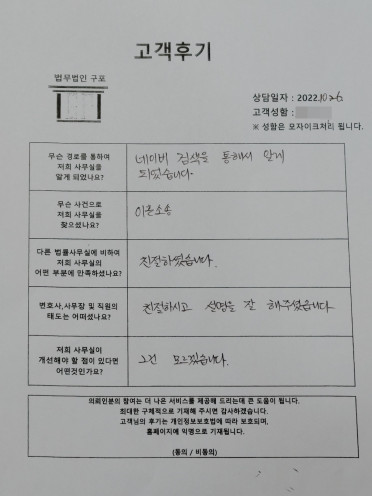 고객후기
법무법인 구포
상담일자 : 2022.10.26.
고객성함 :
※ 성함은 모자이크처리 됩니다.
무슨 경로를 통하여
저희 사무실을
알게 되었나요?
네이버 검색을 통해서 알게
되었습니다.
무슨 사건으로
저희 사무실을
찾으셨나요?
이혼소송
다른 법률사무실에 비하여
저희 사무실의
어떤 부분에 만족하셨나요?
친절하였습니다.
변호사,사무장 및 직원의
태도는 어떠셨나요?
친절하시고 설명을 잘 해주셨습니다
저희 사무실이
개선해야 할 점이 있다면
어떤것인가요?
그건 모르겠습니다.
의뢰인분의 참여는 더 나은 서비스를 제공해 드리는데 큰 도움이 됩니다.
최대한 구체적으로 기재해 주시면 감사하겠습니다.
고객님의 후기는 개인정보보호법에 따라 보호되며,
홈페이지에 익명으로 기재됩니다.
(동의 / 비동의)